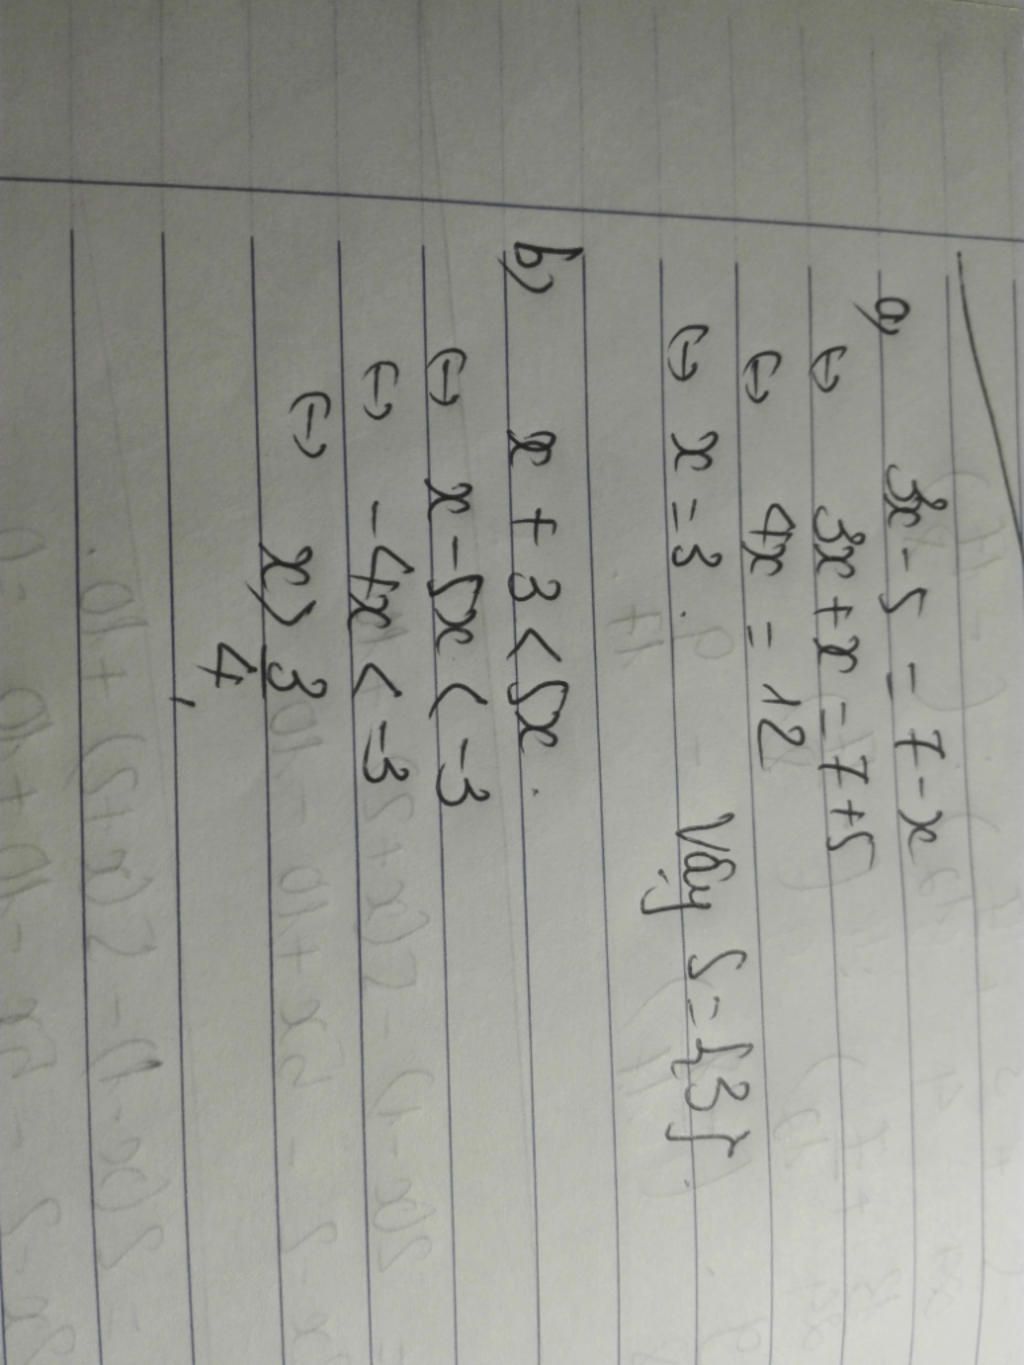 a) 3x - 5 = 7 - x
(-) 3x + x = 7 + 5
(-) 4x = 12
(-) x = 3. Vậy S = {3}.
b) x + 3 < 5x.
(-) x - 5x < -3
(-) -4x < -3
(-) x > 3/4